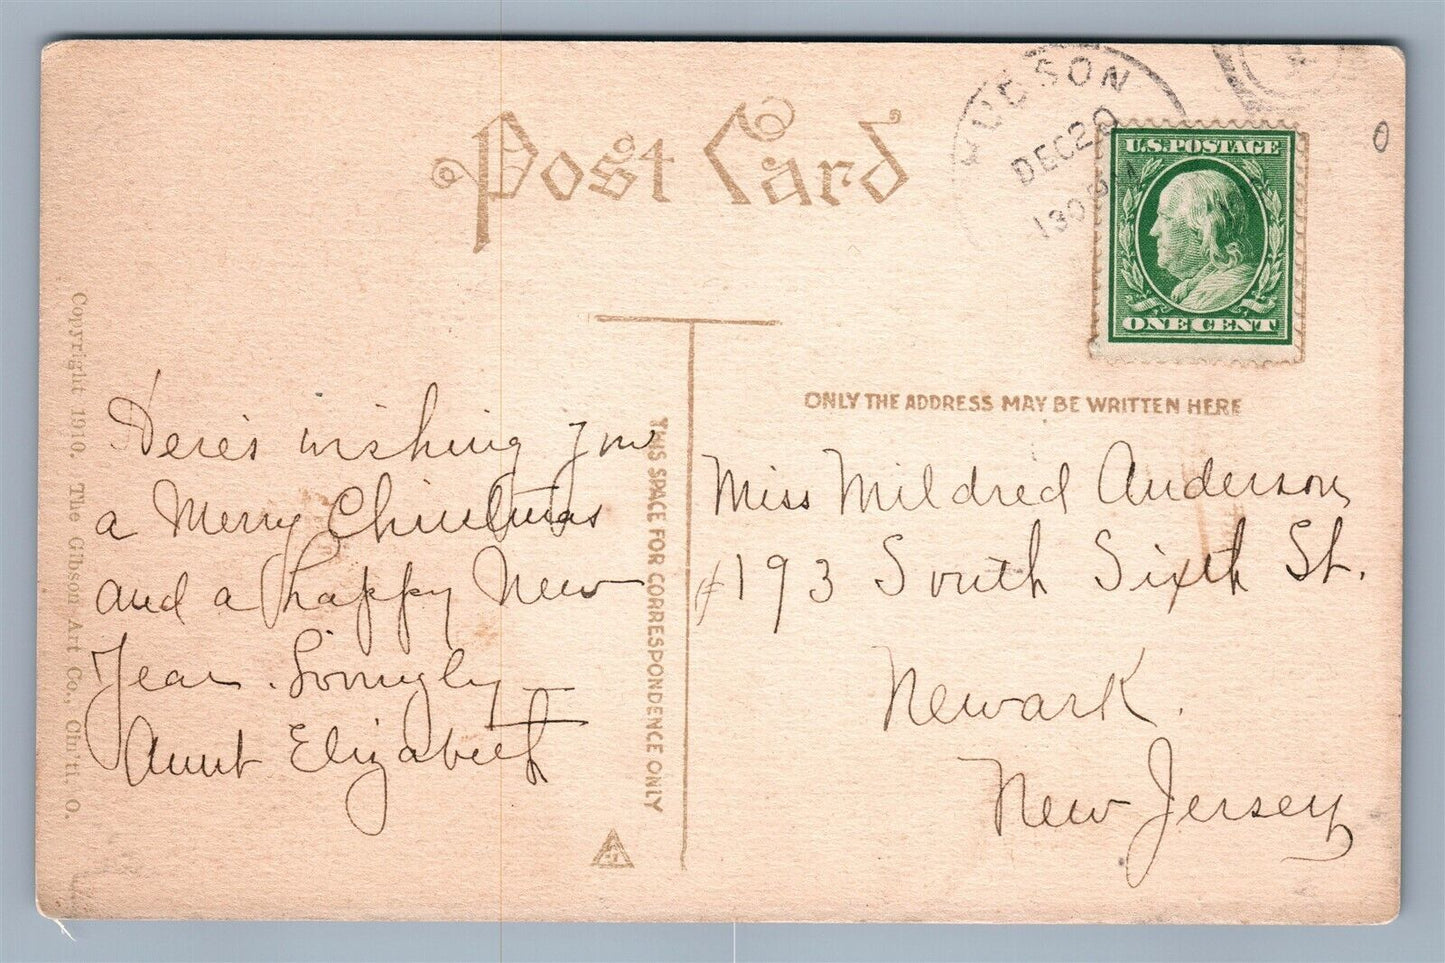 Post Card
HUDSON
DEC 20
130 P M
U.S. POSTAGE
ONE CENT
0
ONLY THE ADDRESS MAY BE WRITTEN HERE
THIS SPACE FOR CORRESPONDENCE ONLY
Copyright 1910. The Gibson Art Co., Cin'ti, O.
Here's wishing you
a Merry Christmas
and a happy New
Year. Lovingly
Aunt Elizabeth
Miss Mildred Anderson,
#193 South Sixth St.
Newark.
New Jersey